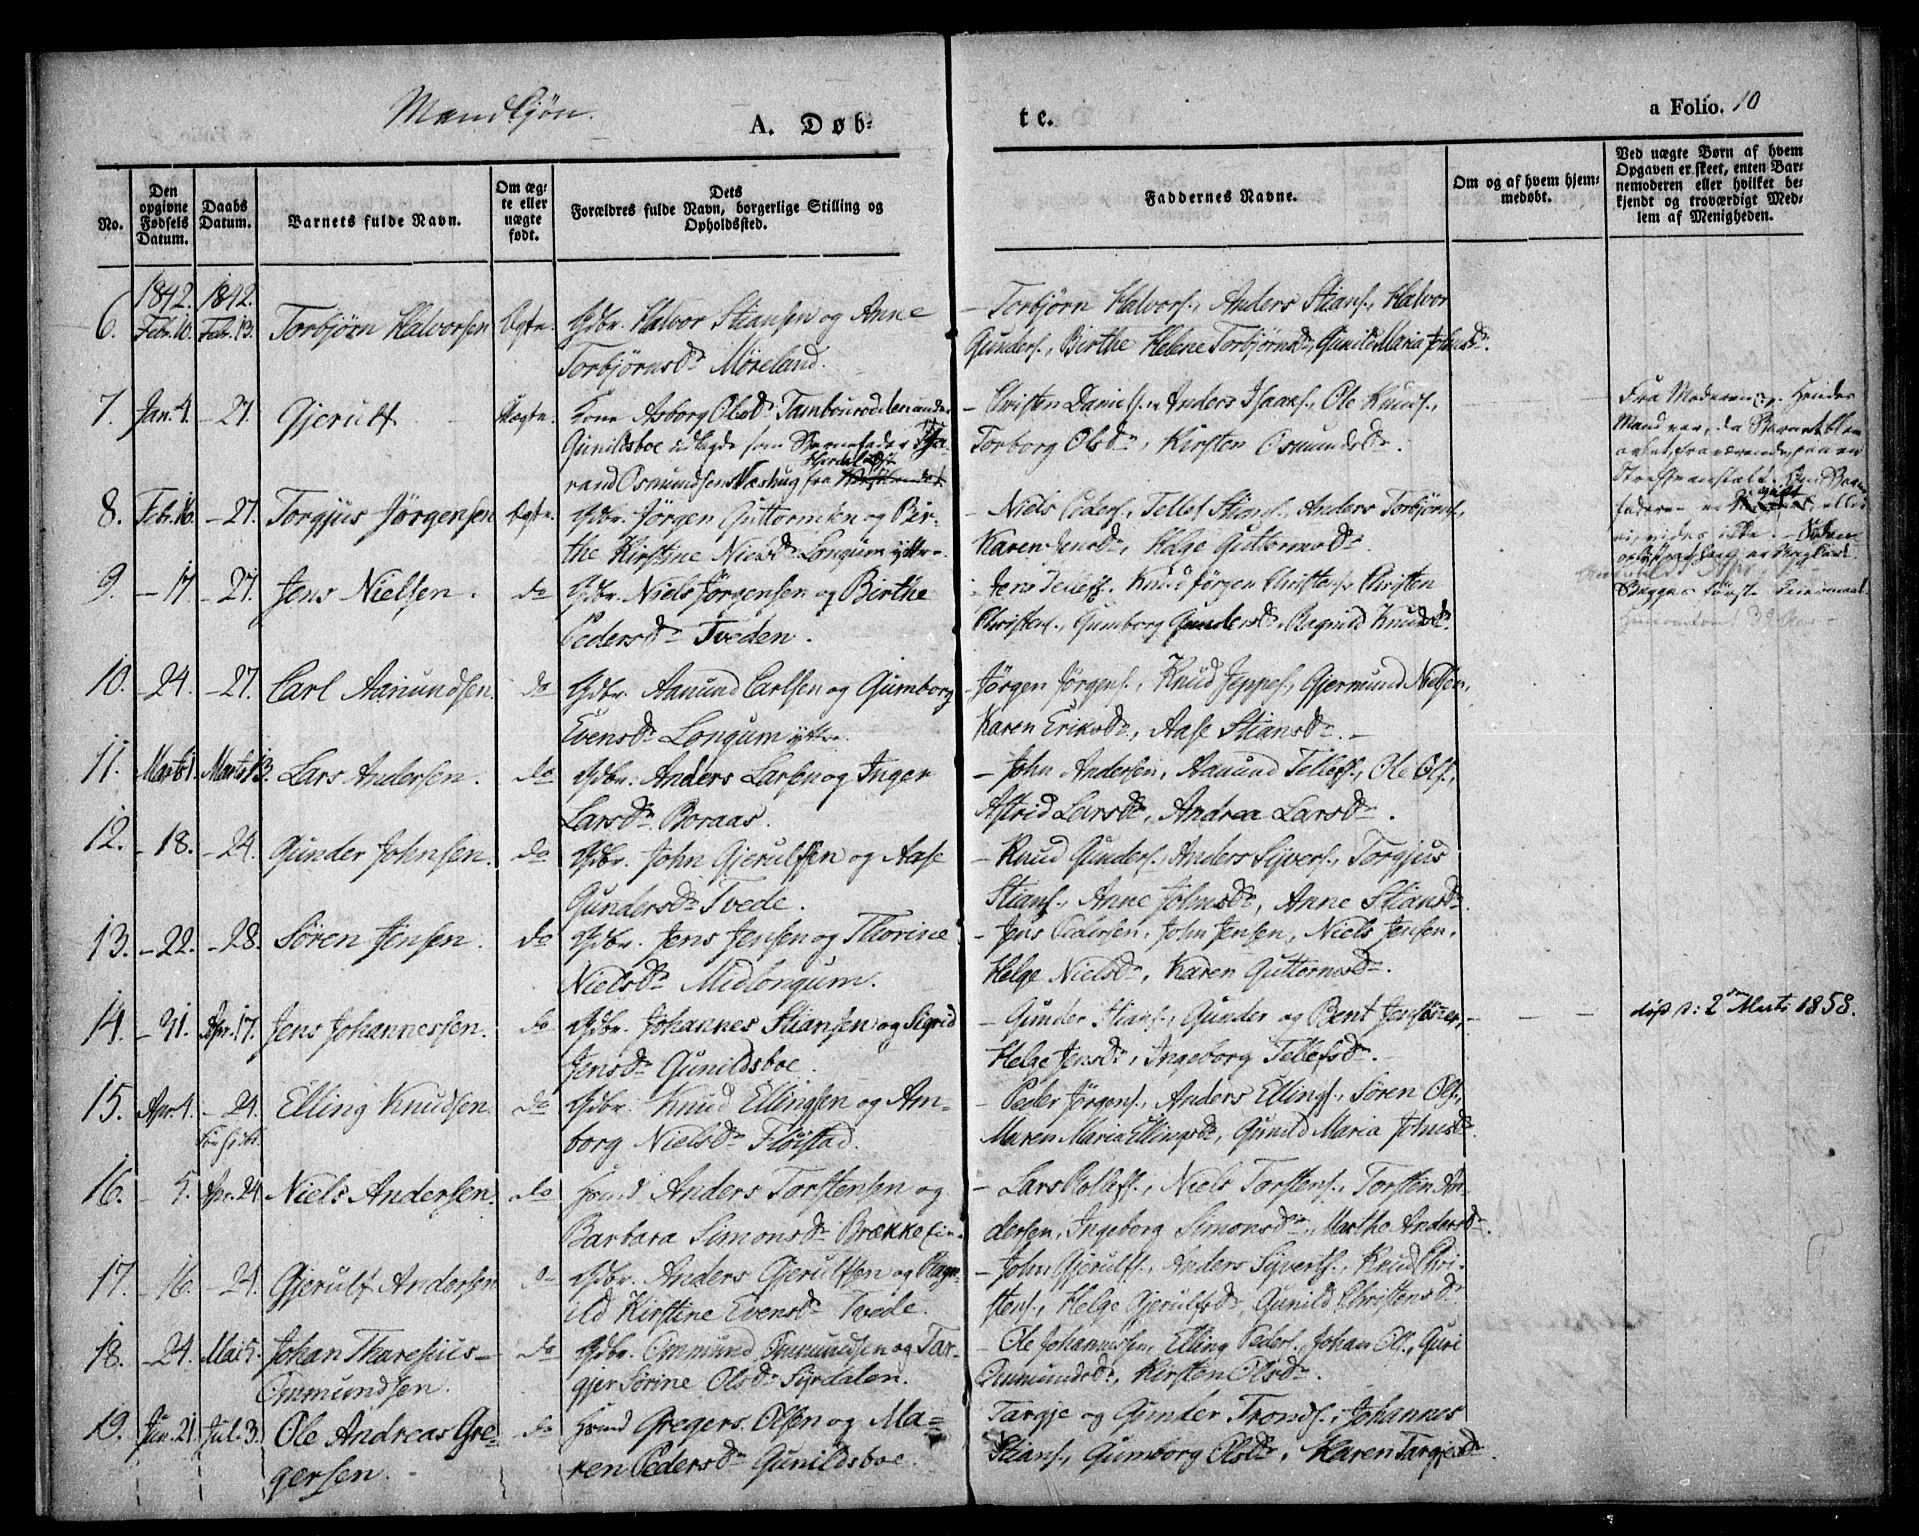 Mandkjøn.
A. Døb-
te.
a Folio. 10
No.
Den opgivne Fødsels Datum.
Daabs Datum.
Barnets fulde Navn.
Om ægte eller uægte født.
Dets Forældres fulde Navn, borgerlige Stilling og Opholdssted.
Faddernes Navne.
Om og af hvem hjemmedøbt.
Ved uægte Børn af hvem Opgaven er skeet, enten Barnemoderen eller hvilket bekjendt og troværdigt Medlem af Menigheden.
1842. 1842.
6. Febr. 10. Febr. 13. Torbjørn Halvorsen Ægte. Gdbr. Halvor Stiansen og Anne
Torbjørnsdr Møreland.
– Torbjørn Halvors., Anders Stians., Halvor
Gunders., Birthe Helene Torbjørnsdr, Gunild Maria Johnsdr.
7. Jan. 4. – 27. Gjerulf Uægte. Kone Asborg Olsdr Tambourodden under
Gunildsboe udlagde som Barnefader
rand Osmundsen fra
– Christen Daniels., Anders Isaaks., Ole Knuds.,
Torborg Olsdr, Kirsten Osmundsdr.
Fra Moderen. Hendes
Mand var, da Barnet blev
avlet, fraværende, paa en
Strafanstalt.
8. Febr. 16. – 27. Torgjus Jørgensen Ægte. Gdbr. Jørgen Guttormsen og Bir-
the Kirstine Nielsdr Longum yttre.
– Niels Peders., Tellef Stians., Anders Torbjørns.,
Karen Jensdr, Helge Guttormsdr.
9. – 17. – 27. Jens Nielsen. do Gdbr. Niels Jørgensen og Birthe
Pedersdr Tveden.
– Jens Tellefs. Knud Jørgen Christens. Christen
Christens., Gumborg Gundersdr, Ragnild Knudsdr.
10. – 24. – 27. Carl Aanundsen. do Gdbr. Aanund Carlsen og Gumborg
Evensdr Longum yttre.
Jørgen Jørgens., Knud Jeppes., Gjermund Nielsen,
Karen Eriksdr, Aase Stiansdr. –
11. Marts 1. Marts 13. Lars Andersen. do Gdbr. Anders Larsen og Inger
Larsdr Boraas.
– John Andersen, Aanund Tellefs., Ole Ols.,
Astrid Larsdr, Andrea Larsdr.
12. – 18. – 24. Gunder Johnsen. do Gdbr. John Gjerulfsen og Aase
Gundersdr Tvede.
– Knud Gunders., Anders Syvers., Torgjus
Stians., Anne Johnsdr, Anne Stiansdr.
13. – 22. – 28. Søren Jensen. do Gdbr. Jens Jensen og Thorine
Nielsdr Midlongum.
– Jens Pedersen, John Jensen, Niels Jensen.
Helge Nielsdr, Karen Guttormsdr.
14. – 31. Apr. 17. Jens Johannessen. do Gdbr. Johannes Stiansen og Sigrid
Jensdr Gunildsboe.
– Gunder Stians., Gunder og Bent Jensønner,
Helge Jensdr, Ingeborg Tellefsdr.
– – døbst: 2den Marts 1858.
15. Apr. 4. – 24. Elling Knudsen. do Gdbr. Knud Ellingsen og Am-
borg Nielsdr Fløistad.
– Peder Jørgens., Anders Ellings., Søren Ols.,
Maren Maria Ellingsdr, Gunild Maria Johnsdr.
16. – 5. Apr. 24. Niels Andersen. do Huusmd Anders Torstensen og
Barbara Simonsdr Brække
– Lars Rollefs., Niels Torstens., Torsten An-
dersen, Ingeborg Simonsdr, Marthe Andersdr
17. – 16. – 24. Gjerulf Andersen do Gdbr. Anders Gjerulfsen og Ragn-
ild Kirstine Evensdr Tvede.
– John Gjerulfs., Anders Syverts., Knud Chri-
stens., Helge Gjerulfsdr, Gunild Christensdr
18. – 24. Mai 5. Johan Tharesius
Ommundsen. do Gdbr. Ommund Ommundsen og Tar-
gjer Sørine Olsdr Syrdalen.
– Ole Johannessen, Elling Peders., Johan Ols., Guri
Ommundsdr, Kirsten Olsdr.
19. Jun. 21. Jul. 3. Ole Andreas Gre-
gersen. do Huusmd Gregers Olsen og Ma-
ren Pedersdr Gunildsboe.
Targje og Gunder Tronds., Johannes
Stians., Gumborg Olsdr, Karen Targjesdr.